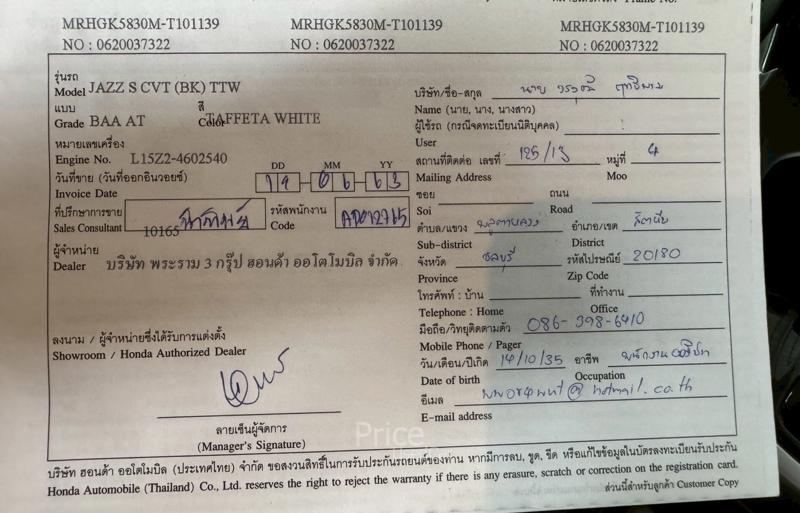 MRHGK5830M-T101139 MRHGK5830M-T101139 MRHGK5830M-T101139
NO : 0620037322 NO : 0620037322 NO : 0620037322
รุ่นรถ
Model JAZZ S CVT (BK) TTW
แบบ สี
Grade BAA AT Color TAFFETA WHITE
หมายเลขเครื่อง
Engine No. L15Z2-4602540
วันที่ขาย (วันที่ออกอินวอยซ์) DD MM YY
Invoice Date 19 - 06 - 63
ที่ปรึกษาการขาย รหัสพนักงาน
Sales Consultant 10165 Code
ผู้จำหน่าย
Dealer บริษัท พระราม 3 กรุ๊ป ฮอนด้า ออโตโมบิล จำกัด
ลงนาม / ผู้จำหน่ายซึ่งได้รับการแต่งตั้ง
Showroom / Honda Authorized Dealer
ลายเซ็นผู้จัดการ
(Manager's Signature)
บริษัท/ชื่อ-สกุล นาย
Name (นาย, นาง, นางสาว)
ผู้ใช้รถ (กรณีจดทะเบียนนิติบุคคล)
User
สถานที่ติดต่อ เลขที่ 125/13 หมู่ที่ 4
Mailing Address Moo
ซอย ถนน
Soi Road
ตำบล/แขวง พลูตาหลวง อำเภอ/เขต สัตหีบ
Sub-district District
จังหวัด ชลบุรี รหัสไปรษณีย์ 20180
Province Zip Code
โทรศัพท์ : บ้าน ที่ทำงาน
Telephone : Home Office
มือถือ/วิทยุติดตามตัว 086-398-6410
Mobile Phone / Pager
วัน/เดือน/ปีเกิด 14/10/35 อาชีพ พนักงานบริษัท
Date of birth Occupation
อีเมล @hotmail.co.th
E-mail address
Price
บริษัท ฮอนด้า ออโตโมบิล (ประเทศไทย) จำกัด ขอสงวนสิทธิ์ในการรับประกันรถยนต์ของท่าน หากมีการลบ, ขูด, ขีด หรือแก้ไขข้อมูลในบัตรลงทะเบียนรับประกัน
Honda Automobile (Thailand) Co., Ltd. reserves the right to reject the warranty if there is any erasure, scratch or correction on the registration card.
ส่วนนี้สำหรับลูกค้า Customer Copy